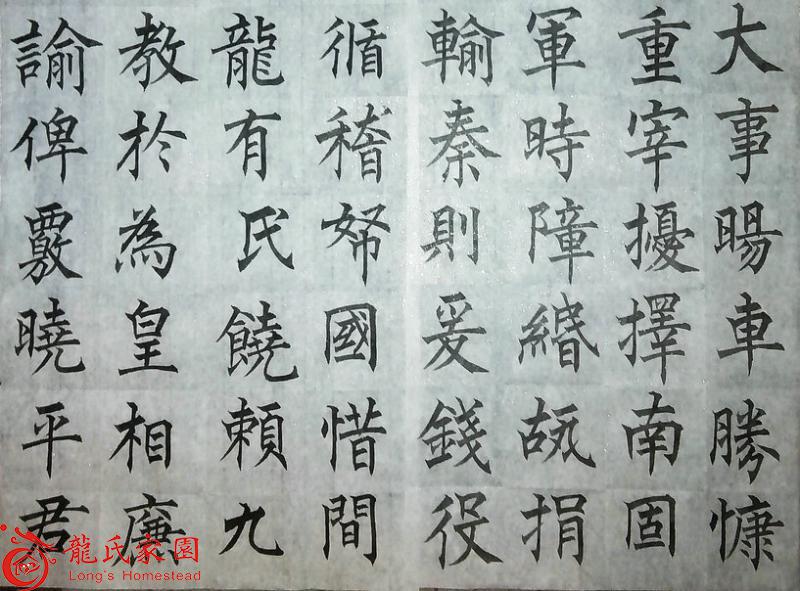 大事暘車勝慷
重宰擾擇南固
軍時障緡捐
輸秦則爰錢役
循稽帑國惜間
龍有氏饒賴九
教於為皇相廉
諭俾覈曉平君
龍氏家園
Long's Homestead